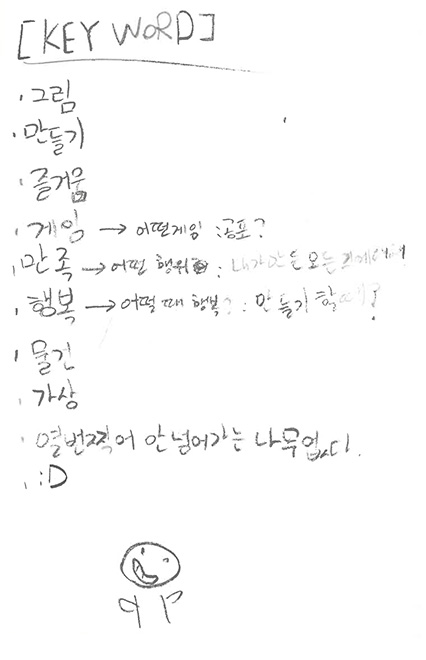 [KEY WORD]
· 그림
· 만들기
· 즐거움
· 게임 → 어떤게임 : 공포?
· 만족 → 어떤 행위 : 내가 만든 모든
· 행복 → 어떨 때 행복? : 만들기 할 때?
· 물건
· 가상
· 열번찍어 안넘어가는 나무없다.
· :D